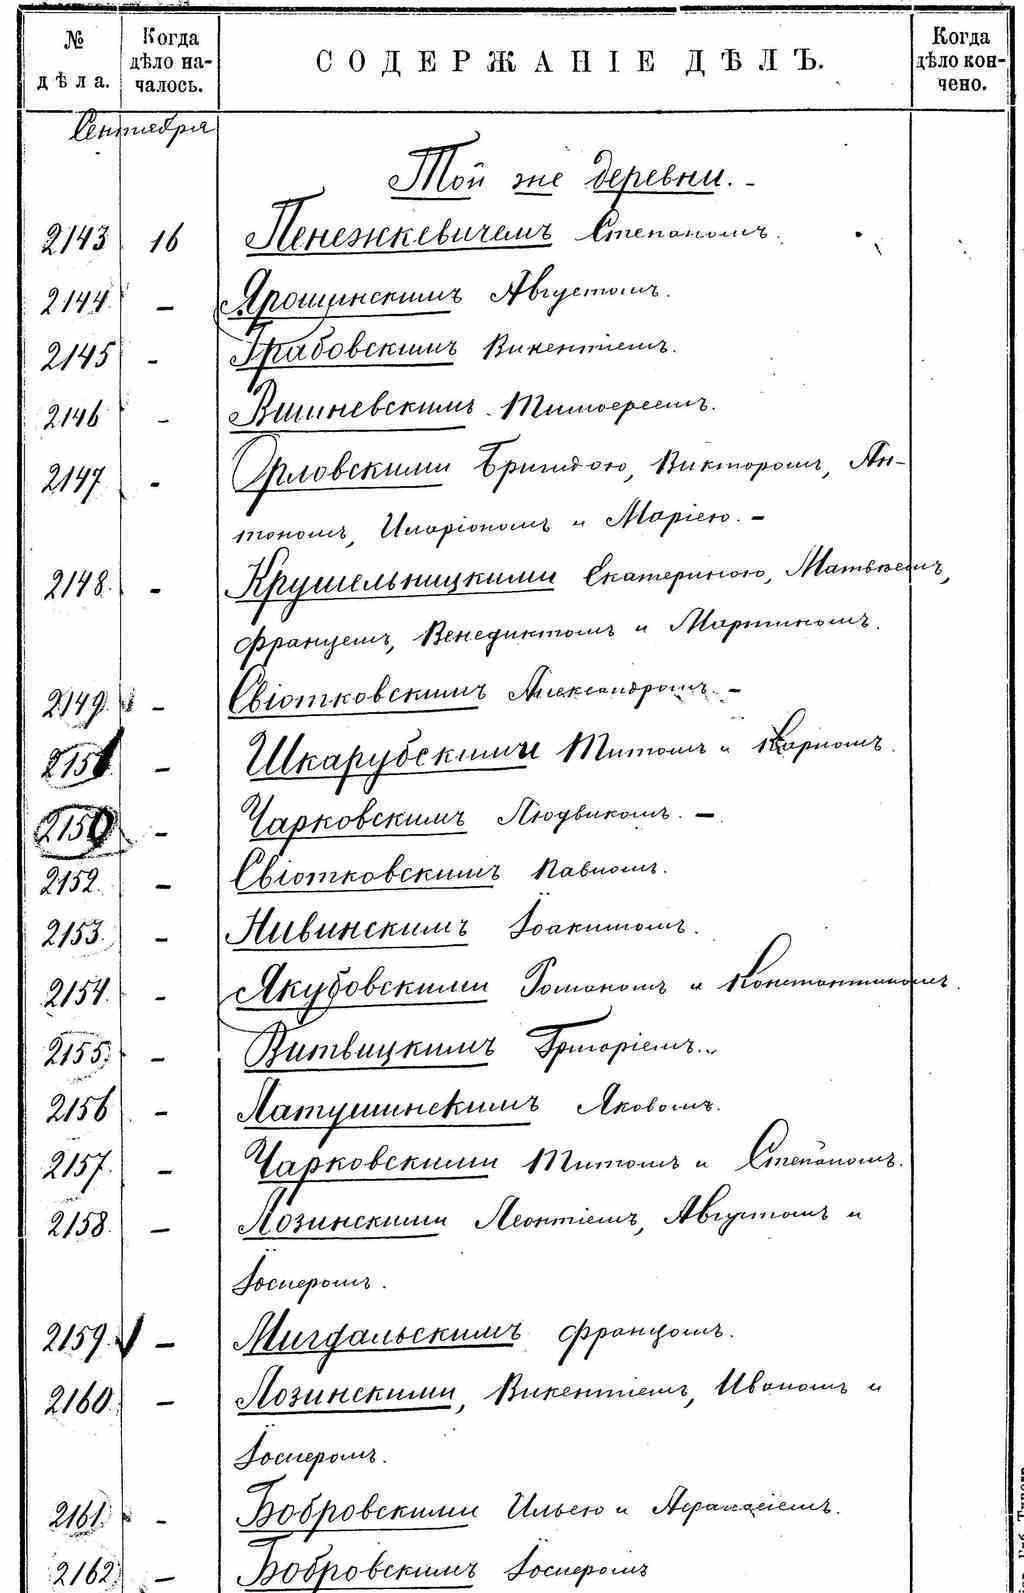 № дѣла. Когда дѣло началось. СОДЕРЖАНІЕ ДѢЛЪ. Когда дѣло кончено.
Сентября
Той же деревни.
2143 16 Пенежкевичемъ Степаномъ.
2144 — Ярошинскимъ Августомъ.
2145 - Грабовскимъ Викентіемъ.
2146 - Вишневскимъ Тимоѳеемъ.
2147 - Орловскими Бригидою, Викторомъ, Ан-
тономъ, Иларіономъ и Маріею. —
2148. - Крушельницкими Екатериною, Матвѣемъ,
Францемъ, Венедиктомъ и Мартиномъ.
2149. - Свіотковскимъ Александромъ. —
2151 - Шкарубскими Титомъ и Карпомъ.
2150 - Чарковскимъ Людвикомъ. —
2152. - Свіотковскимъ Павломъ.
2153. - Нивинскимъ Іоакимомъ.
2154. - Якубовскими Романомъ и Константиномъ.
2155. - Витвицкимъ Григоріемъ.
2156 - Латушинскимъ Яковомъ.
2157. - Чарковскими Титомъ и Степаномъ.
2158. — Лозинскими Леонтіемъ, Августомъ и
Іосифомъ.
2159. — Мигдальскимъ Францомъ.
2160. — Лозинскими, Викентіемъ, Иваномъ и
Іосифомъ.
2161. - Бобровскими Ильею и Афанасіемъ.
2162. - Бобровскимъ Іосифомъ